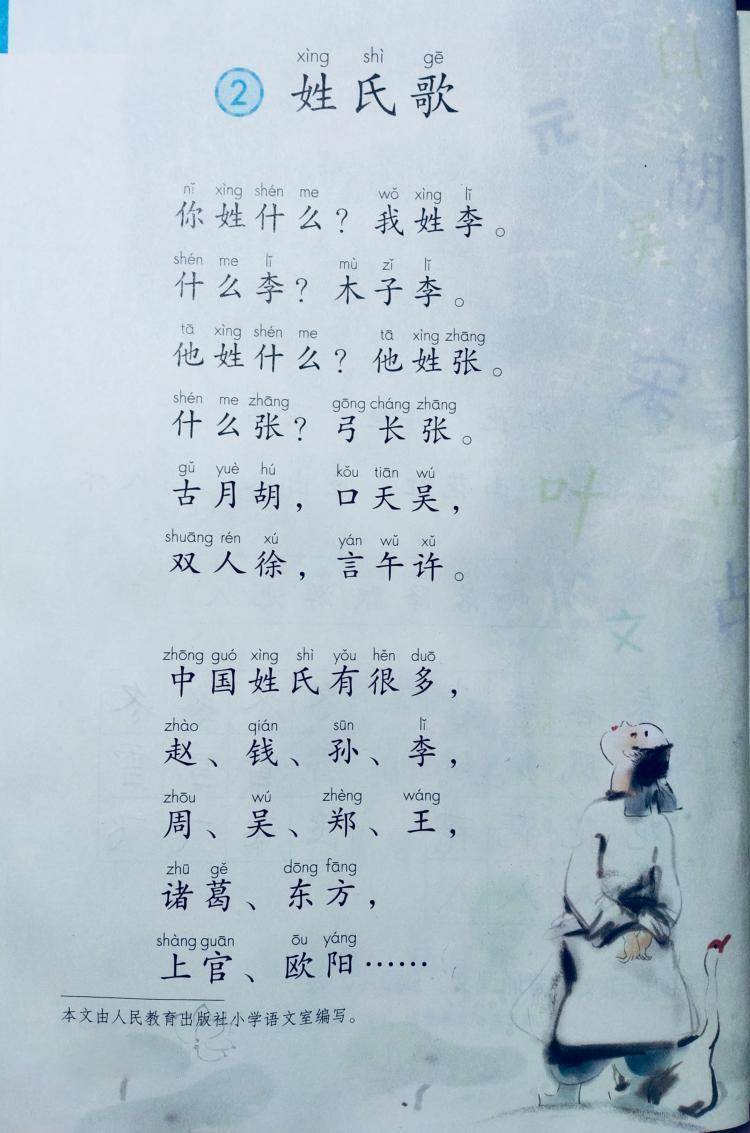 xìng shì gē
② 姓氏歌
nǐ xìng shén me wǒ xìng lǐ
你姓什么？我姓李。
shén me lǐ mù zǐ lǐ
什么李？木子李。
tā xìng shén me tā xìng zhāng
他姓什么？他姓张。
shén me zhāng gōng cháng zhāng
什么张？弓长张。
gǔ yuè hú kǒu tiān wú
古月胡，口天吴，
shuāng rén xú yán wǔ xǔ
双人徐，言午许。
zhōng guó xìng shì yǒu hěn duō
中国姓氏有很多，
zhào qián sūn lǐ
赵、钱、孙、李，
zhōu wú zhèng wáng
周、吴、郑、王，
zhū gě dōng fāng
诸葛、东方，
shàng guān ōu yáng
上官、欧阳……
本文由人民教育出版社小学语文室编写。
白
元
米
胡
吴
宋
叶
文